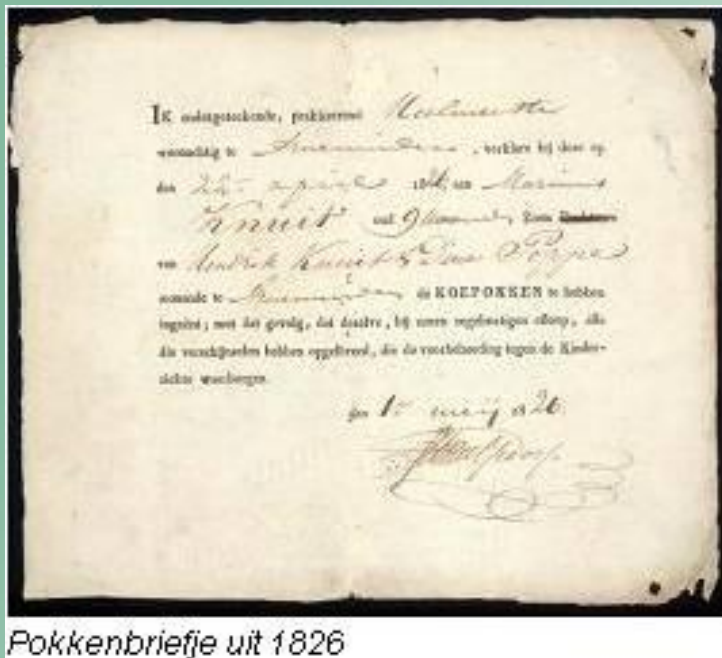 IK ondergeteekende, praktiserend
woonachtig te , verklare bij deze op
den 22e april 1826, aan Marinus
Knuit oud 9 Zoon
van Hendrik Knuit & Poppe
wonende te de KOEPOKKEN te hebben
ingeënt; met dat gevolg, dat dezelve, bij eenen regelmatigen afloop, alle
die verschijnselen hebben opgeleverd, die de voorbehoeding tegen de Kinder-
ziekte waarborgen.
den 1e meij 1826.
Pokkenbriefje uit 1826